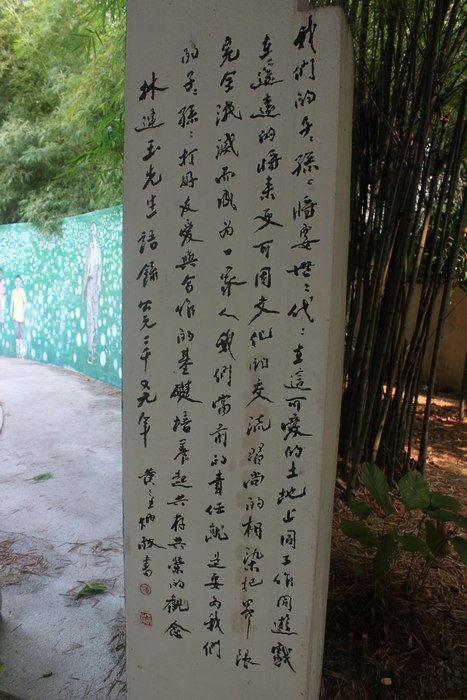 我們的子:孫:將要世:代:在這可愛的土地上同工作同遊戲
在遥遠的將来更可因文化的交流習尚的相染把界限
完全淡滅而成为一家人我們當前的責任就是要为我們
的子:孫:打好友愛與合作的基礎培养起共存共榮的觀念
林連玉先生語錄 公元二千又九年 黄 炳 敬書